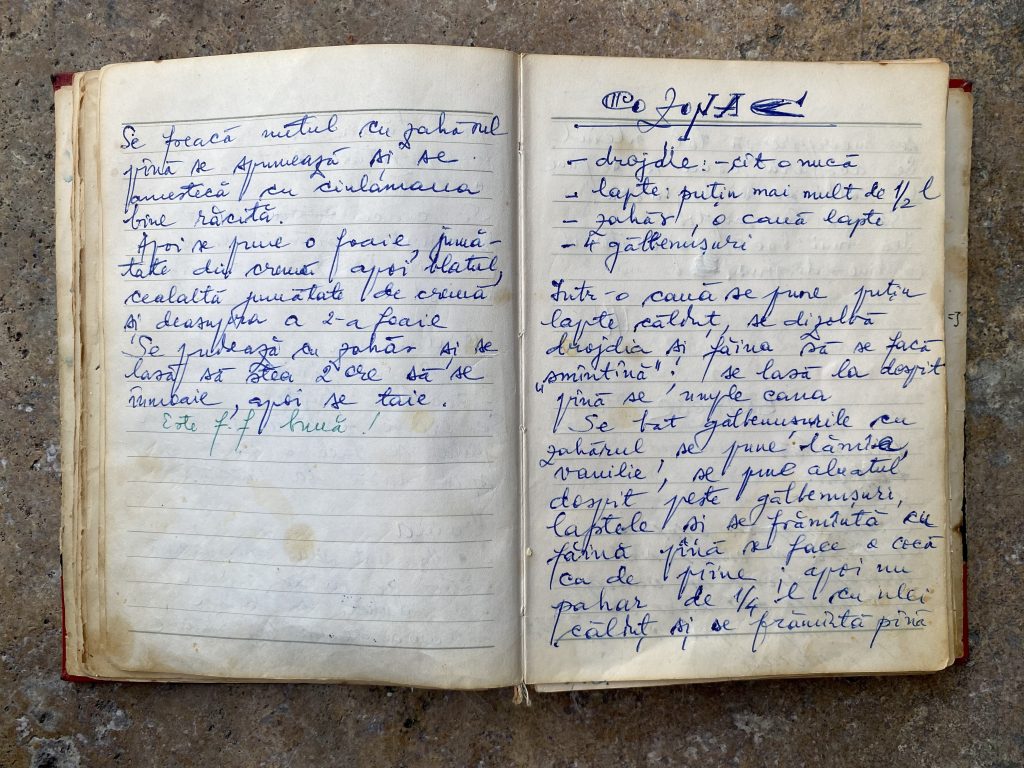 Se freacă untul cu zahărul
pînă se spumează și se
amestecă cu ciulamaua
bine răcită.
Apoi se pune o foaie, jumă-
tate din cremă apoi blatul,
cealaltă jumătate de cremă
și deasupra a 2-a foaie
Se pudrează cu zahăr și se
lasă să stea 2 ore să se
înmoaie, apoi se taie.
Este f. f bună!
CozoNAC
- drojdie: - cît o nucă
- lapte: puțin mai mult de 1/2 l
- zahăr, o cană lapte
- 4 gălbenușuri
Într-o cană se pune puțin
lapte căldut, se dizolvă
drojdia si făina să se facă
"smîntînă"; se lasă la dospit
pînă se umple cana
Se bat gălbenușurile cu
zahărul, se pune lămîie,
vanilie, se pune aluatul
dospit peste gălbenușuri,
laptele si se frămîntă cu
făină pînă se face o cocă
ca de pîine; apoi un
pahar de 1/4 l cu ulei
căldut și se frămîntă pînă